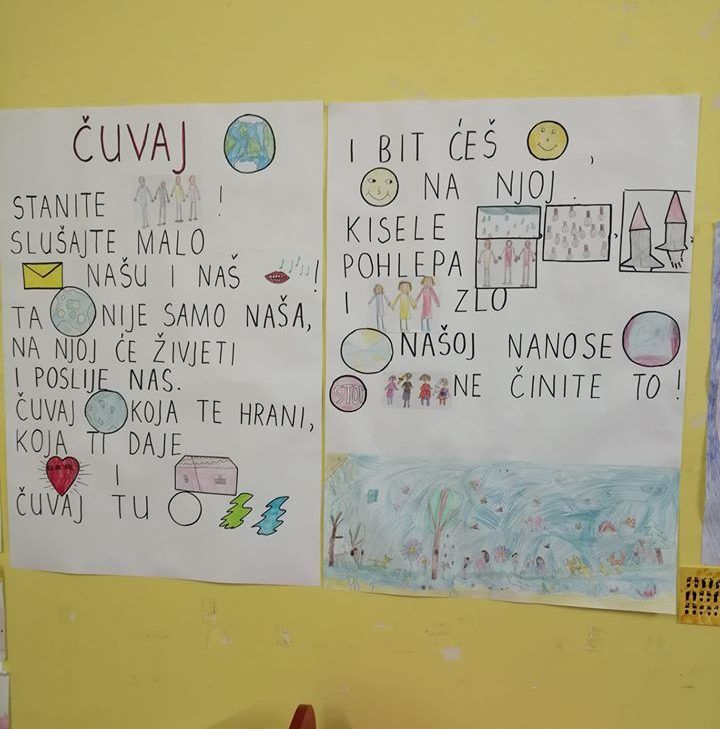 ČUVAJ
STANITE !
SLUŠAJTE MALO
NAŠU I NAŠ !
TA NIJE SAMO NAŠA,
NA NJOJ ĆE ŽIVJETI
I POSLIJE NAS.
ČUVAJ KOJA TE HRANI,
KOJA TI DAJE
I
ČUVAJ TU
I BIT ĆEŠ ,
NA NJOJ .
KISELE , ,
POHLEPA
I ZLO
NAŠOJ NANOSE
STOP NE ČINITE TO !